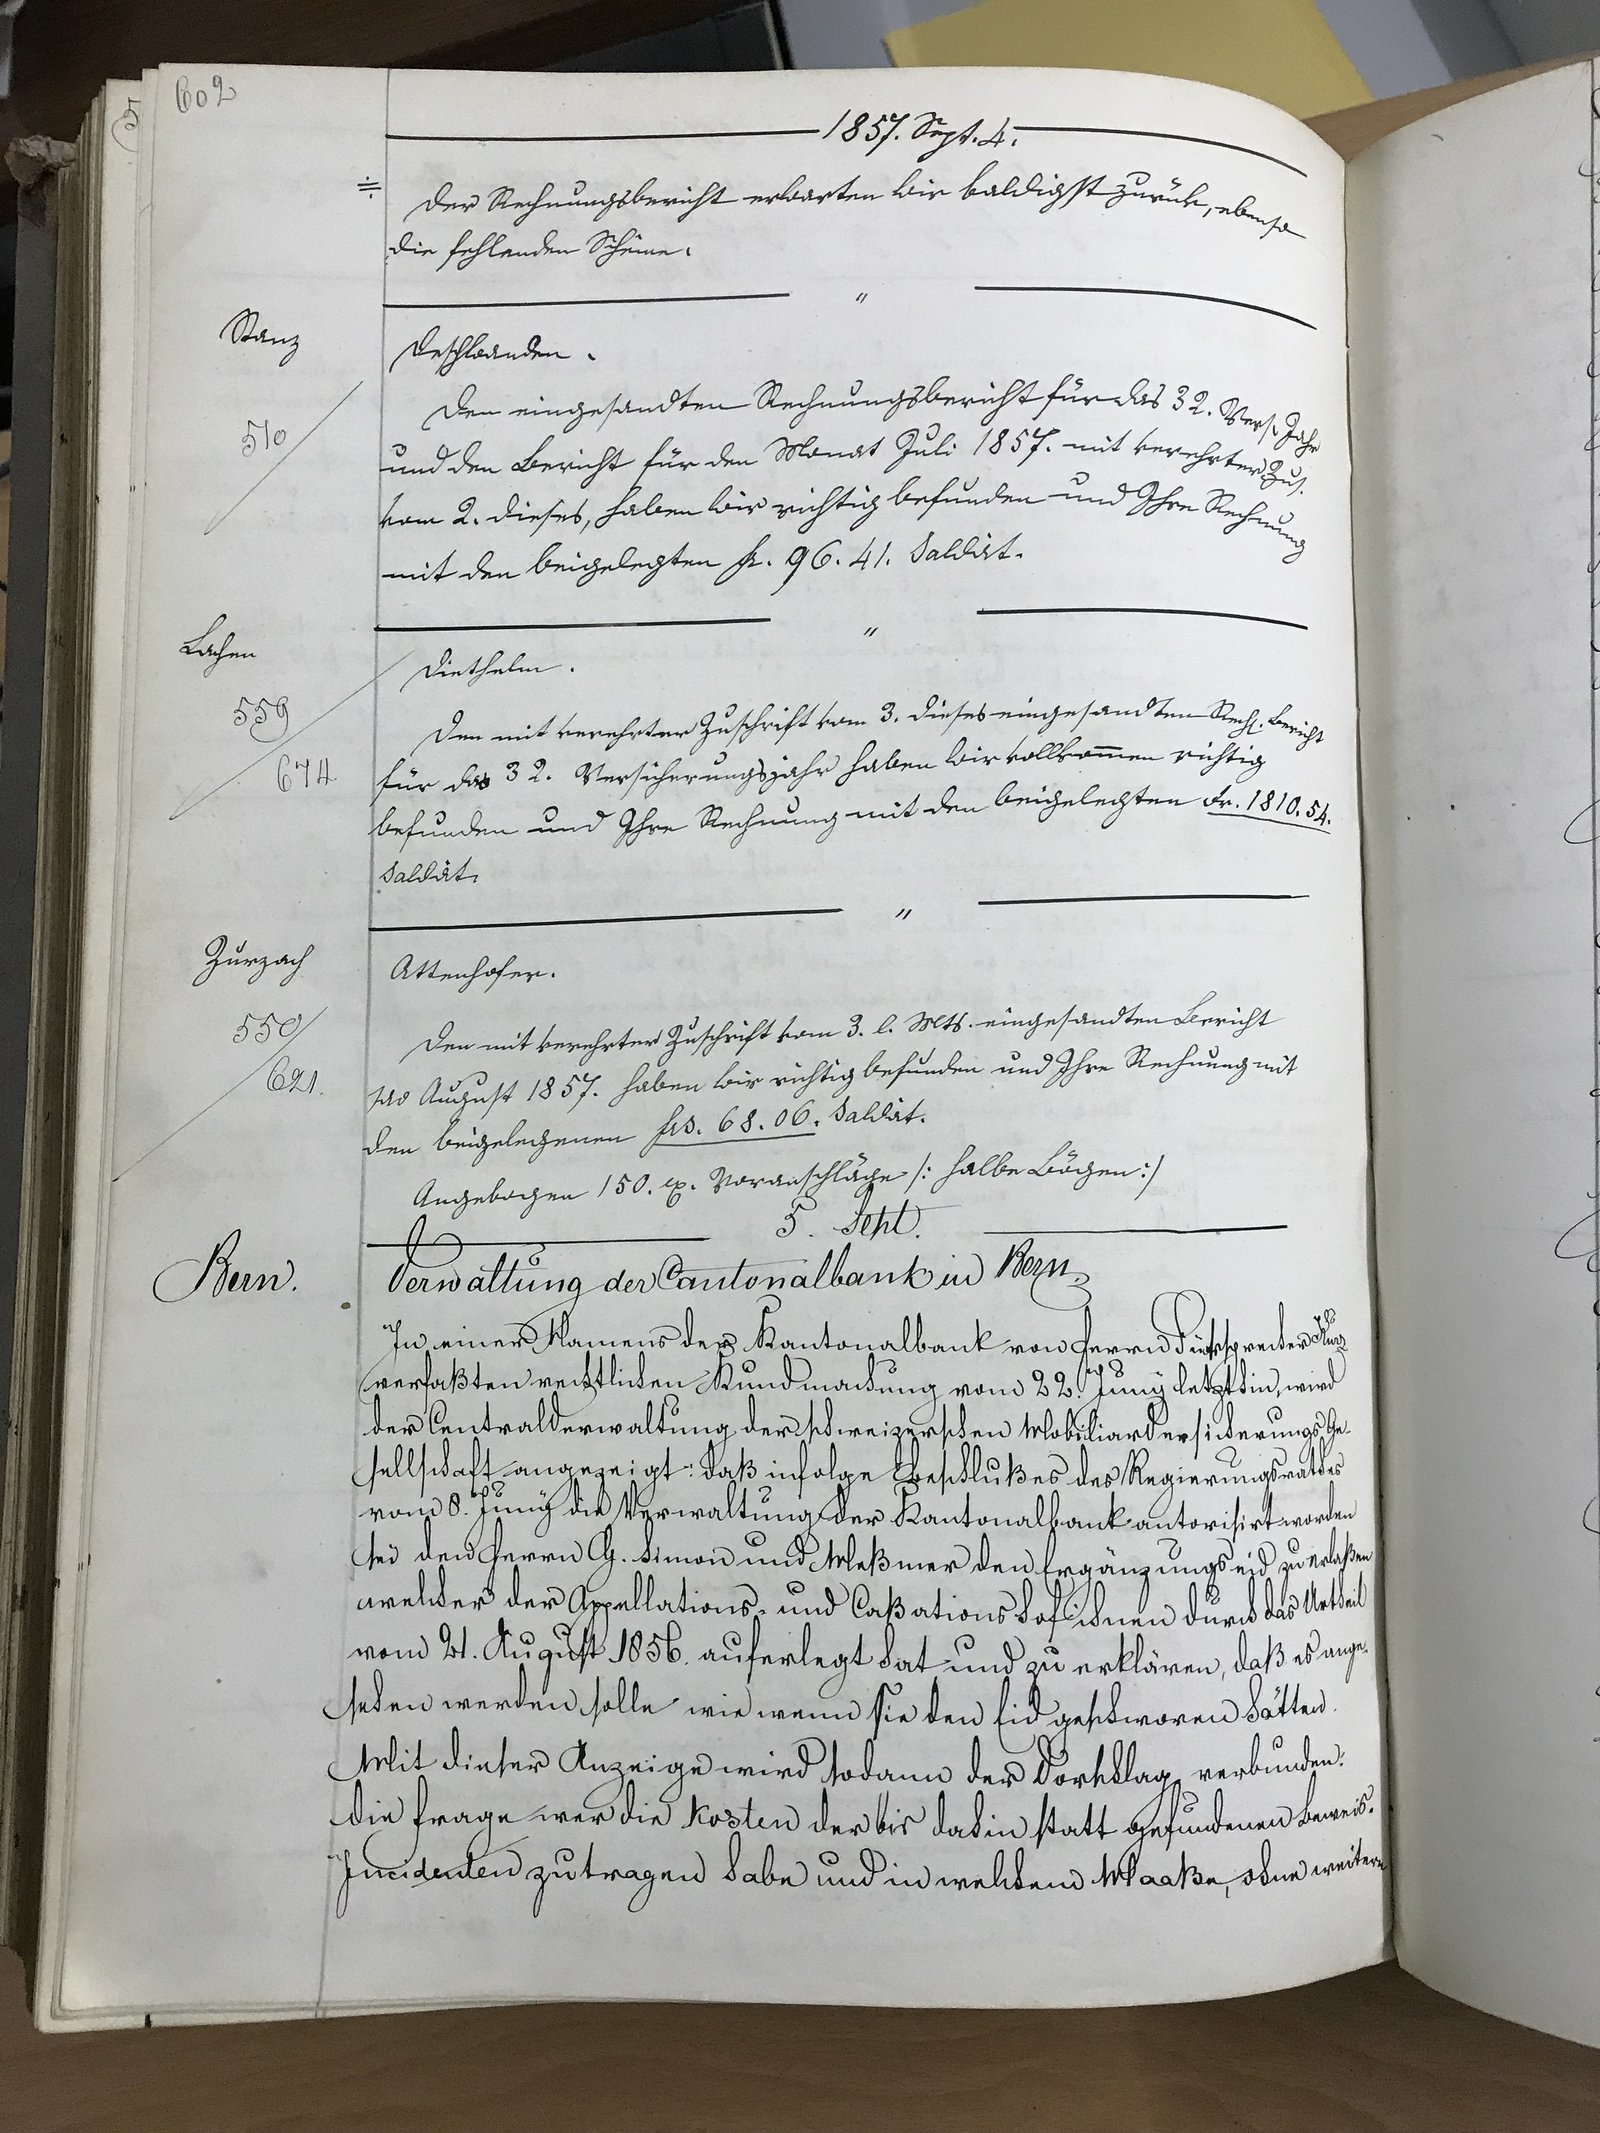 602
1857. Sept. 4.
Der Rechnungsbericht erwarten wir baldigst zurück, ebenso
die fehlenden Scheine.
"
Stanz
Deschwanden.
510
Den eingesandten Rechnungsbericht für das 32. Vers. Jahr
und den Bericht für den Monat Juli 1857. mit verehrter Zus.
vom 2. dieses, haben wir richtig befunden und Ihre Rechnung
mit den beigelegten fr. 96.41. saldirt.
"
Lachen
Diethelm.
559
674
Den mit verehrter Zuschrift vom 3. dieses eingesandten Rech. Bericht
für das 32. Versicherungsjahr haben wir vollkom̅en richtig
befunden und Ihre Rechnung mit den beigelegten Fr. 1810.54.
saldirt.
"
Zurzach
Attenhofer.
550
621.
Den mit verehrter Zuschrift vom 3. l. Mts. eingesandten Bericht
pro August 1857. haben wir richtig befunden und Ihre Rechnung mit
den beigelegenen frs. 68.06. saldirt.
Angebogen 150. Ex. Voranschläge /: halbe Bögen :/
5. Sept.
Bern.
Verwaltung der Cantonalbank in Bern.
In einer Namens der Kantonalbank von Herrn Fürsprecher Kurz
verfaßten rechtlichen Kundmachung vom 22. Juny letzthin, wird
der Centralverwaltung der schweizerschen Mobiliarversicherungs Ge-
sellschaft angezeigt: daß infolge Beschlußes des Regierungsrathes
vom 8. Juny die Verwaltung der Kantonalbank autorisirt worden
sei den Herrn G. Simon und Meßmer den Ergänzungseid zu erlaßen
welcher der Appellations- und Caßationshof ihnen durch das Urtheil
vom 21. August 1856. auferlegt hat und zu erklären, daß es ange-
sehen werden solle wie wenn sie den Eid geschworen hätten.
Mit dieser Anzeige wird sodann der Vorschlag verbunden:
die Frage wer die Kosten der bis dahin statt gefundenen Beweis-
Incidenten zu tragen habe und in welchem Maaße, ohne weitere